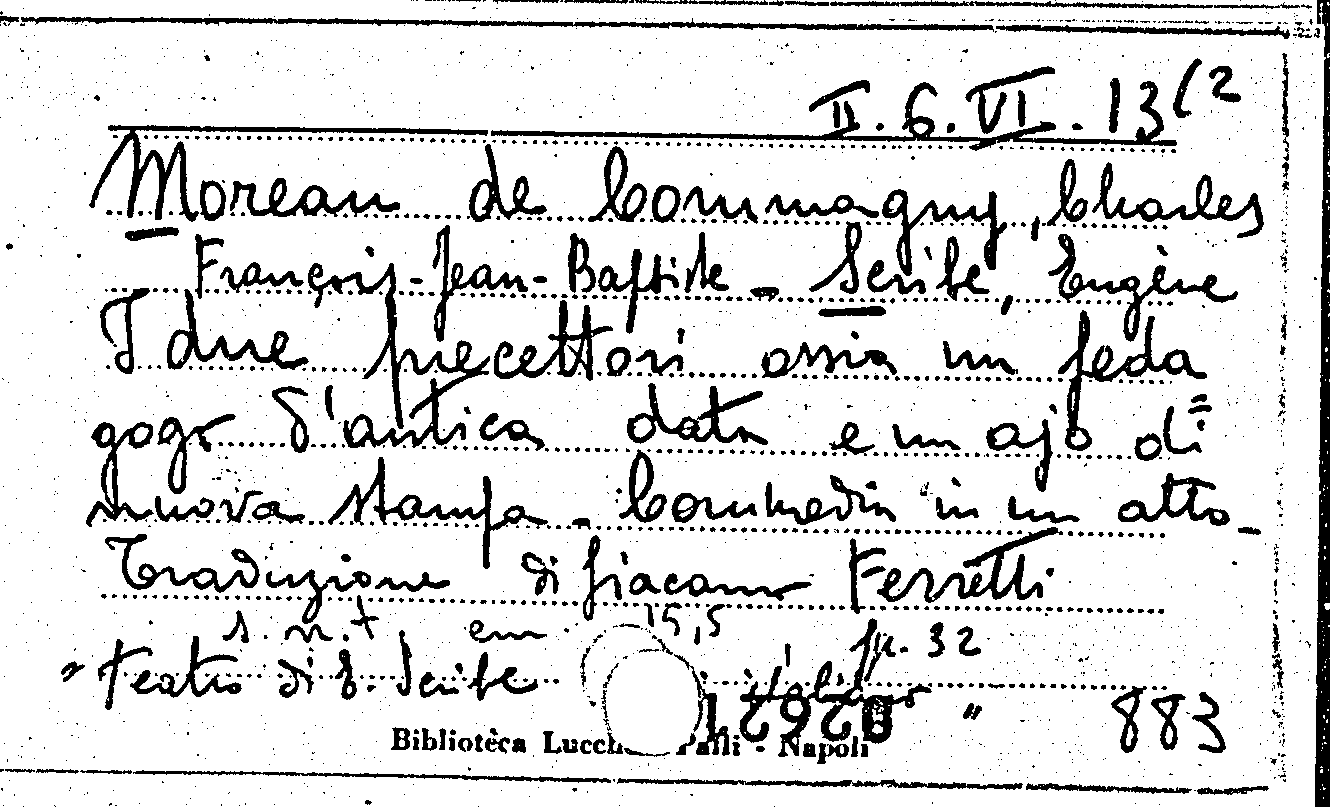 II. 6. VI. 13(2
Moreau de Commagny, Charles
François-Jean-Baptiste - Scribe, Eugène
I due precettori ossia un peda
gogo d'antica data e un ajo di
nuova stampa - Commedia in un atto -
Traduzione di Giacomo Ferretti
s. n. t. cm 15,5 pp. 32
"Teatro di E. Scribe italiano " 883
Bibliotèca Lucch Palli - Napoli